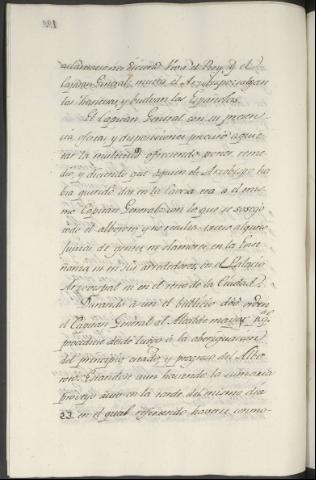 aclamaciones diciendo Viva el Rey, y el
Capitan General, muera el Arzobispo salgan
las Tranzas y buelvan las Españolas.
El Capitan General con su presencia
oferta, y disposiciones procuró aquie-
tar la multitud ofreciendo poner reme-
dio, y diciendo que aquien de Arzobispo ha-
bia querido dar en la Caveza era a el mis-
mo Capitan General con lo que se sosegó
todo el alboroto y no resulta exceso alguno
Juntas de gentes ni clamores en la Ense-
ñanza ni en sus alrededores, en el Palacio
Arzobispal ni en el resto de la Ciudad.
Durando aun el bullicio dió orden
el Capitan General al Alcalde mayor
procediese desde luego a la aberiguacion
del principio, causa, y progreso del Albo-
roto. Estandose aun haciendo la sumaria
proveyó auto en la tarde del mismo dia
23. en el qual refiriendo haverse conmo-